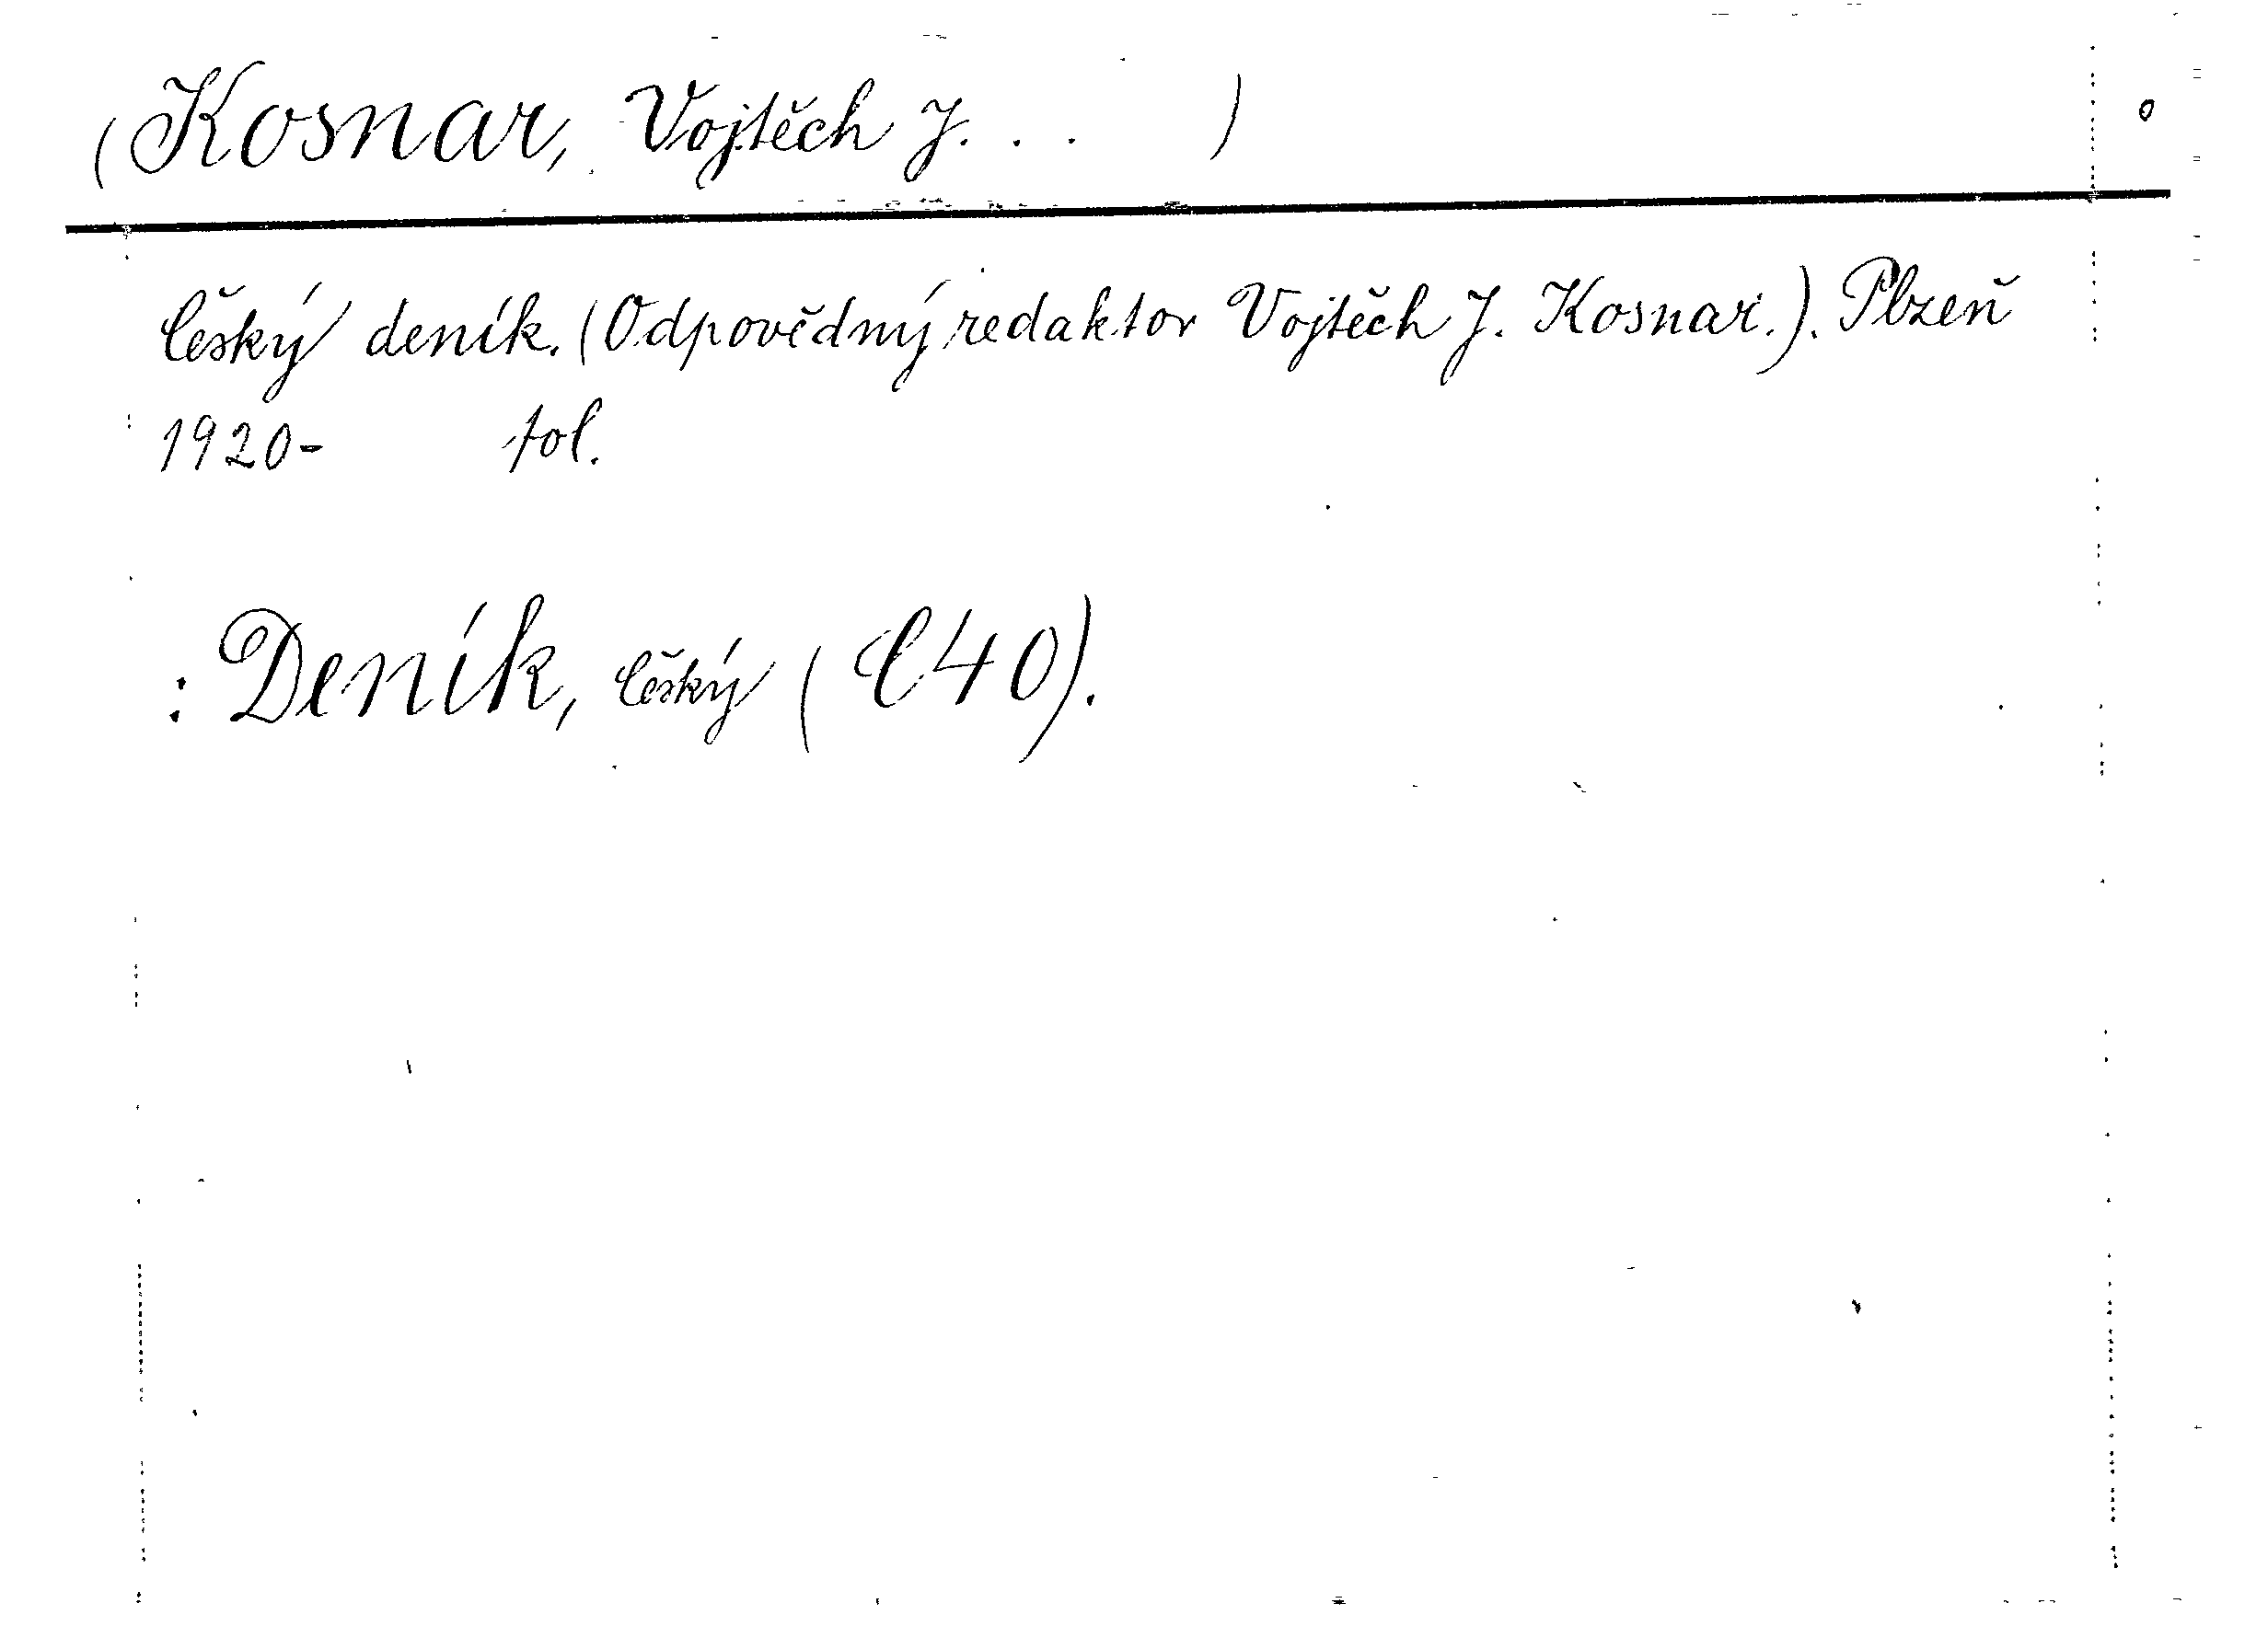 (Kosnar, Vojtěch J. . . )
Český deník. (Odpovědný redaktor Vojtěch J. Kosnar.). Plzeň
1920- fol.
: Deník, český (C40).